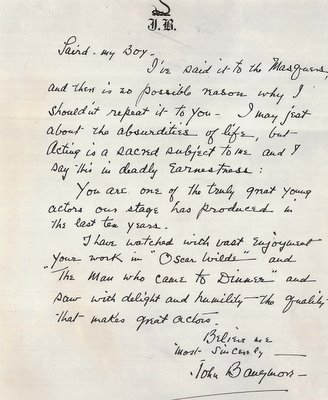 J.B.
Laird - my Boy -
I've said it to the Masquers,
and there is no possible reason why I
shouldn't repeat it to you - I may jest
about the absurdities of life, but
Acting is a sacred subject to me and I
say this in deadly Earnestness:
You are one of the truly great young
actors our stage has produced in
the last ten years.
I have watched with vast Enjoyment
your work in "Oscar Wilde" and
"The Man who came to Dinner" and
saw with delight and humility the quality
that makes great actors.
Believe me
most sincerely
John Barrymore